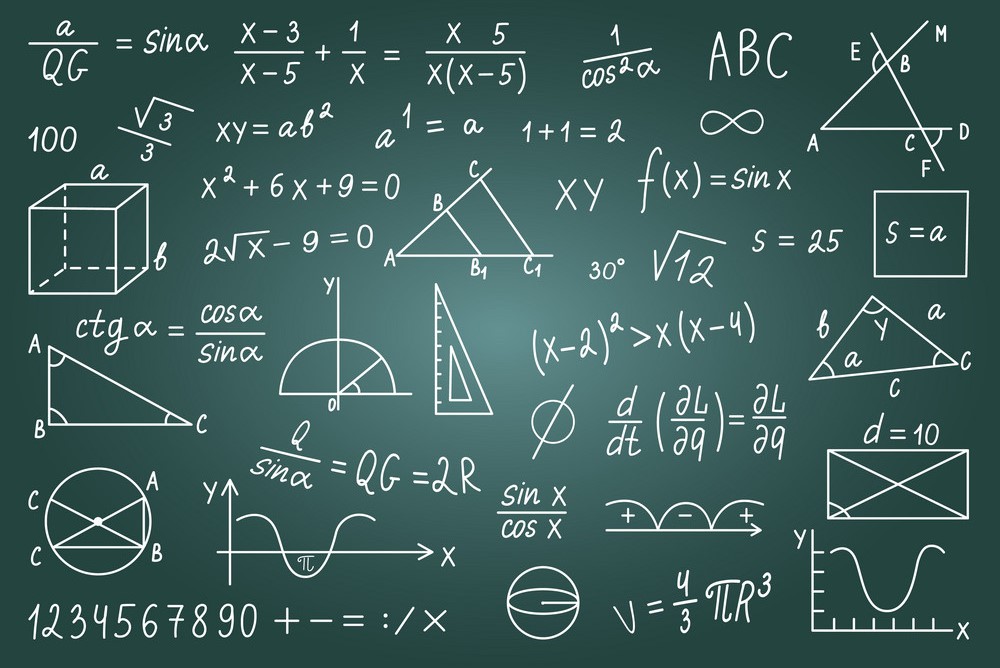 a/QG = sinα
x-3/x-5 + 1/x = x 5/x(x-5)
1/cos²α
ABC
E M B A C D F
100
√3/3
xy = ab²
a¹ = a
1+1=2
∞
a b
x² + 6x + 9 = 0
A B C B₁ C₁
XY
f(x) = sin x
2√x - 9 = 0
30°
√12
S = 25
S = a
ctg α = cosα/sinα
A B C
Y 0
(x-2)² > x(x-4)
b a y a c C
∅
d/dt (∂L/∂q) = ∂L/∂q
d = 10
Q/sinα = QG = 2R
C A C B
Y X π
sin x/cos x
+ - +
Y X
1234567890 + - = : / ×
V = 4/3 πR³